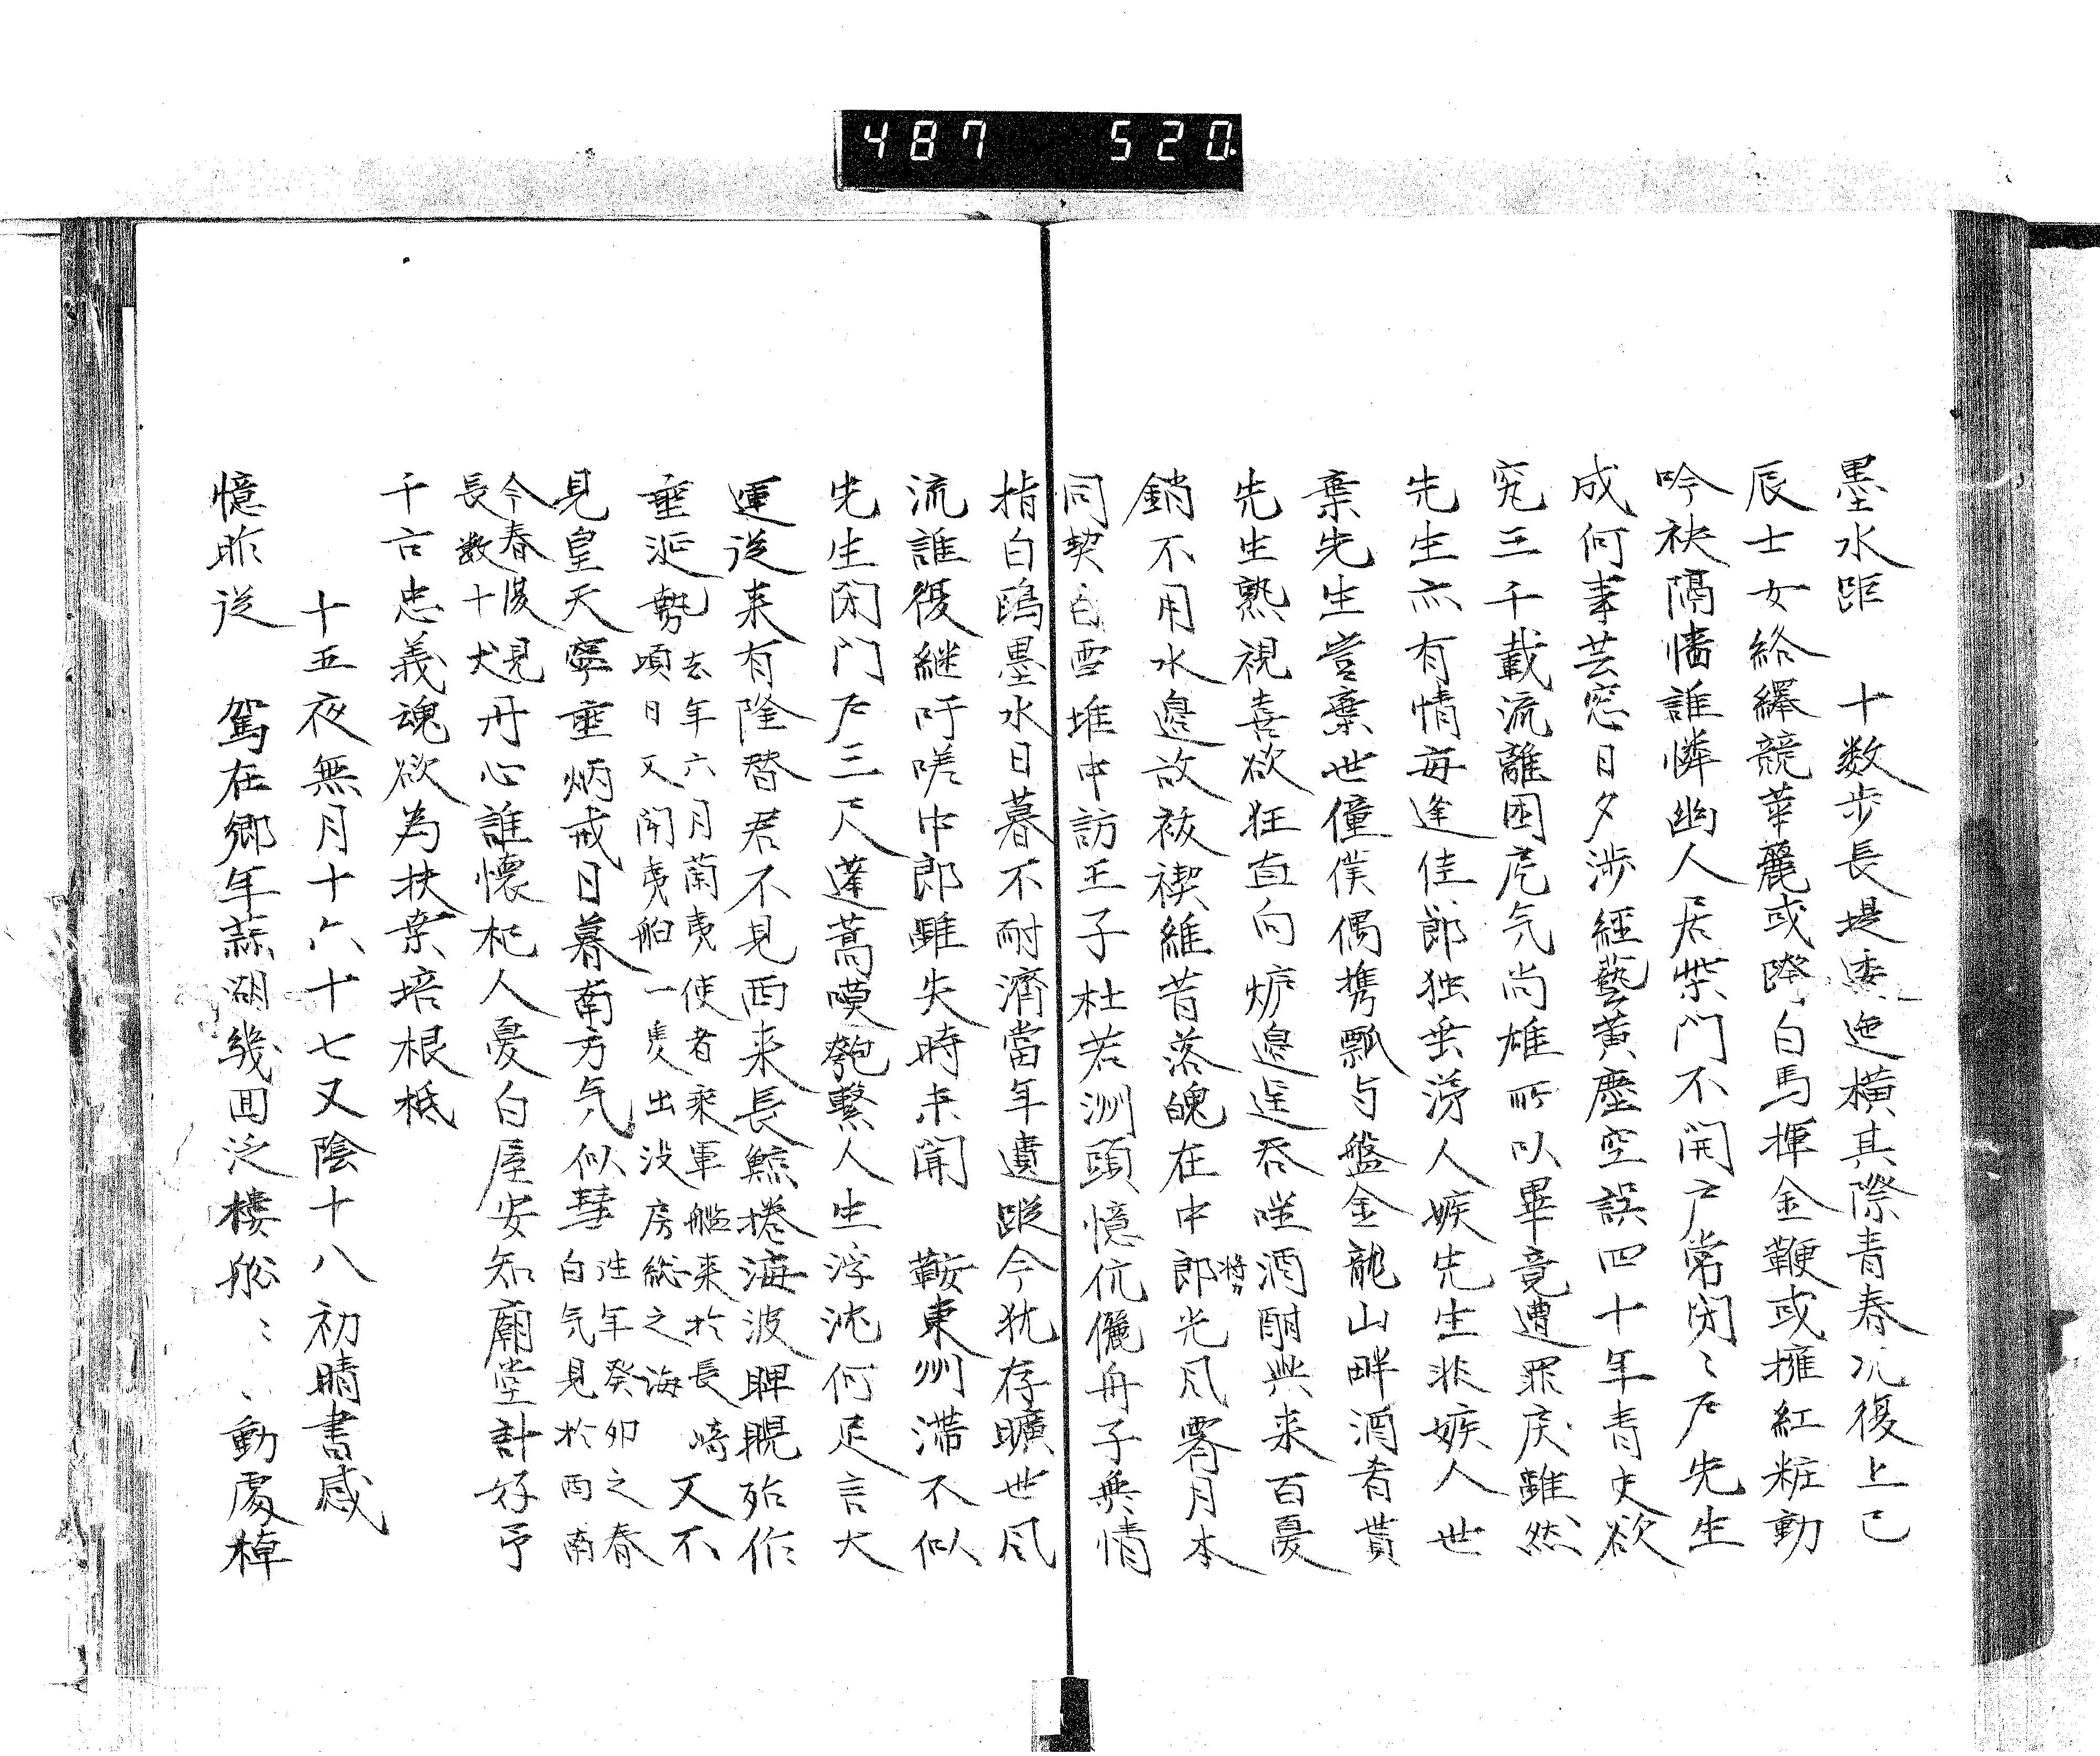 487 520
墨水距 十数步長堤逶迤横其際青春况復上巳
辰士女絡繹競華麗或跨白馬揮金鞭或擁紅粧動
吟袂隔墻誰憐幽人居柴門不開戶常閉〻戶先生
成何事芸窓日夕渉經藝黄塵空誤四十年青史欲
究三千載流離困厄气尚雄所以畢竟遭罪戻雖然
先生亦有情毎逢佳節独垂涕人嫉先生非嫉人世
棄先生豈棄世僮僕偶携瓢与盤金龍山畔酒肴貰
先生熟視喜欲狂直向炉邊逞呑噬酒酣興来百憂
銷不用水邊故祓禊維昔落魄在中郎将光風霽月本
同契白雪堆中訪王子杜若洲頭憶伉儷舟子無情
指白鷗墨水日暮不耐濟當年遺蹤今猶存曠世風
流誰復継吁嗟中郎雖失時未聞 鞍東州滞不似
先生閑門戶三尺蓬蒿嘆匏繋人生浮沈何足言大
運従来有隆替君不見西来長鯨捲海波睥睨殆作
垂涎勢去年六月蘭夷使者乘軍艦来於長崎
頃日又聞夷舶一隻出没房総之海又不
見皇天寧垂炳戒日暮南方气似彗往年癸卯之春
白气見於西南
今春復見
長数十丈丹心誰懐杞人憂白屋安知廟堂計好予
千古忠義魂欲為扶桒培根柢
十五夜無月十六十七又陰十八初晴書感
憶昨従 駕在郷年蒜湖幾回泛楼船〻〻動處棹